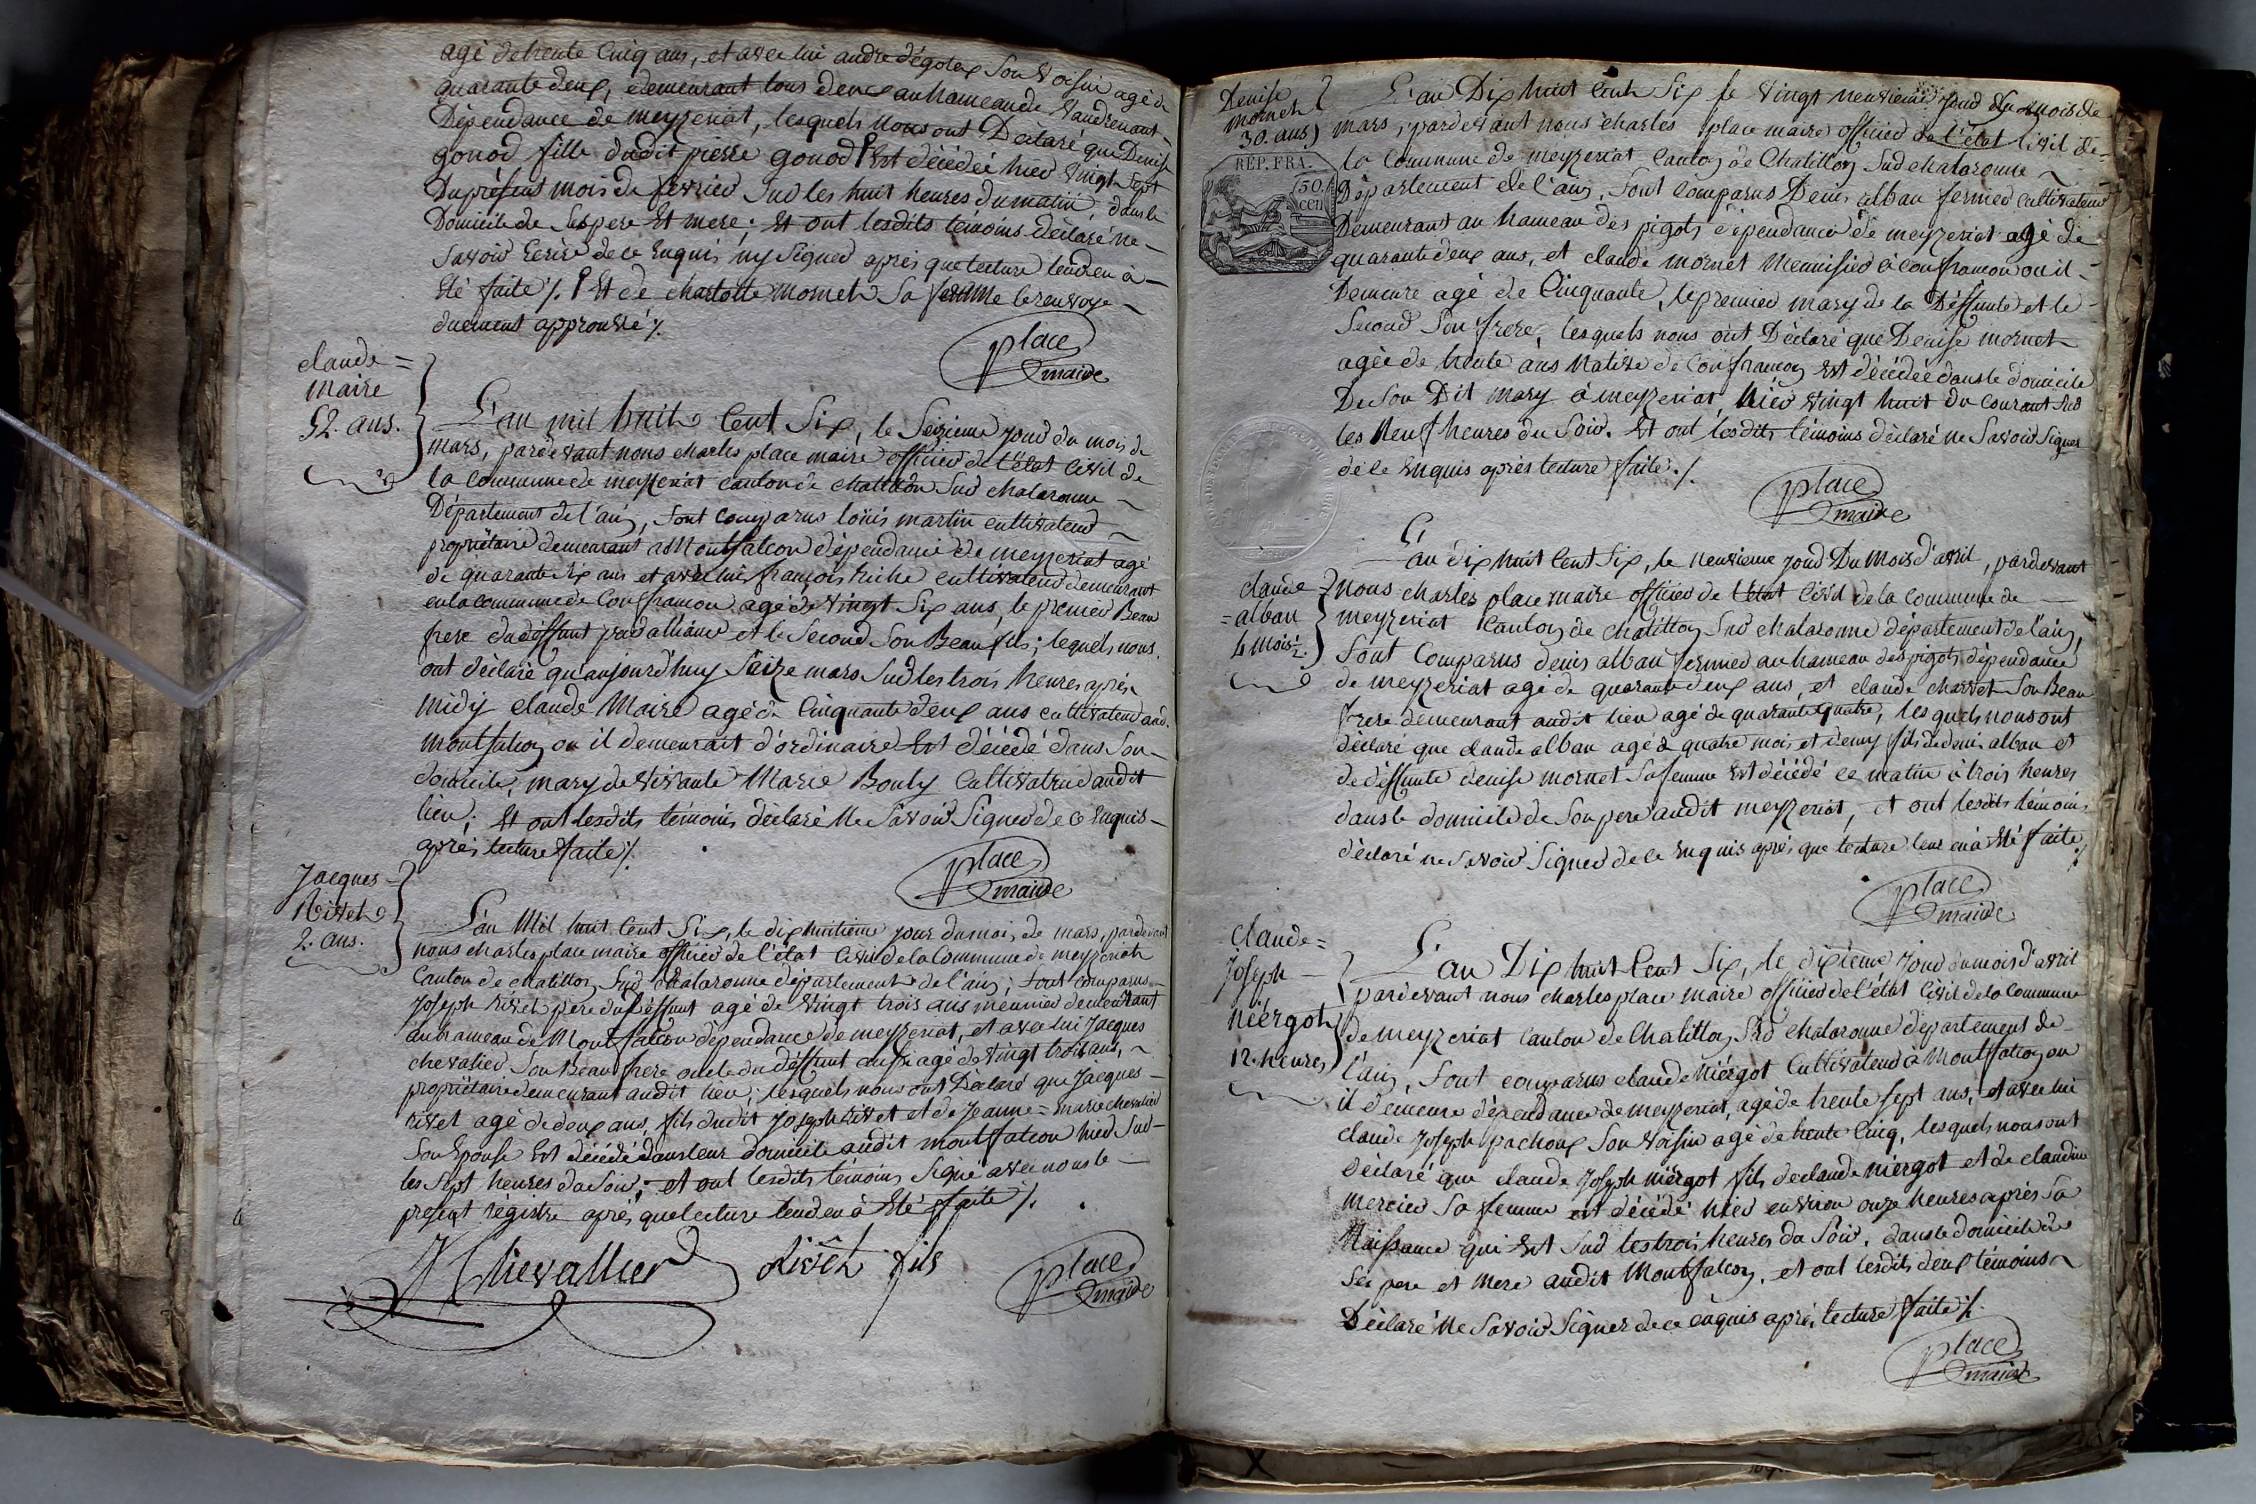 agé de trente Cinq ans, et avec lui andré dégoley Son voisin agé de
quarante deux, demeurant tous deux au hameau de vaudrenant
Dépendance de meyzeriat, lesquels nous ont Déclaré que Denise
gonod fille dudit pierre gonod Est décédée hier vingt Sept
Du présent mois de fevrier Sur les huit heures du matin, dans le
Domicile de Ses pere Et mere; Et ont lesdits témoins déclaré ne
Savoir Ecrire de ce Enquis ny Signer après que lecture leur en à
Eté faite /. Et de charlotte mornet Sa femme le renvoye
duement approuvé /.
place
maire
claude =
Maire
52. ans.
L'an mil huit Cent Six, le Seizieme jour du mois de
mars, pardevant nous charles place maire officier de l'état Civil de
la Commune de meyzeriat Canton de chatillon Sur chalaronne
Département de l'ain, Sont comparus loüis martin cultivateur
propriétaire demeurant a Montfalcon dépendance de meyzeriat agé
de quarante Six ans et avec lui françois cultivateur demeurant
en la commune de Confrancon agé de vingt Six ans, le premier Beau
frere du déffunt par alliance et le Second Son Beau fils; lequels nous
ont déclaré qu'aujourd'huy Seize mars Sur les trois heures après
midy claude Maire agé de Cinquante deux ans cultivateur aud.
montfalcon ou il demeurait d'ordinaire Est décédé dans Son
domicile, mary de vivante Marie Bouly Cultivatrice audit
lieu; Et ont lesdits témoins déclaré Ne Savoir Signer de ce Enquis
après lecture faite /.
place
maire
Jacques
Rivet
2. ans.
L'an Mil huit Cent Six, le dix huitieme jour du mois de mars, pardevant
nous charles place maire officier de l'état Civil de la Commune de meyzeriat
Canton de chatillon Sur Chalaronne département de l'ain; Sont comparus
Joseph Rivet pere du déffunt agé de vingt trois ans meunier demeurant
au hameau de Montfalcon dépendance de meyzeriat, et avec lui Jacques
chevalier Son Beau frere oncle du déffunt aussi agé de vingt trois ans,
propriétaire demeurant audit lieu; lesquels nous ont Déclaré que Jacques
rivet agé de deux ans, fils dudit Joseph Rivet et de Jeanne = marie chevalier
Son Epouse Est décédé dans leur domicile audit montfalcon hier Sur
les Sept heures du Soir; et ont lesdits témoins Signé avec nous le
present régistre après que lecture leur en à Eté faite /.
J Chevallier rivêt fils place
maire
Denise
mornet
30. ans
REP. FRA.
50.
cen
L'an Dix huit Cent Six le vingt neuvieme jour du mois de
mars, pardevant nous charles place maire officier de l'état Civil de
la Commune de meyzeriat Canton de Chatillon Sur chalaronne
Département de l'ain, Sont Comparus Denis alban fermier cultivateur
Demeurant au hameau des pigots dépendance de meyzeriat agé de
quarante deux ans, et claude mornet Menuisier à confrancon ou il
Demeure agé de Cinquante, le premier mary de la Déffunte et le
Second Son frere, lesquels nous ont Déclaré que Denise mornet
agée de trente ans Native de Confrancon Est décédée dans le domicile
De Son Dit mary à meyzeriat, hier vingt huit du courant Sur
les Neuf heures du Soir. Et ont lesdits témoins déclaré ne Savoir Signer
de ce Enquis après lecture faite. /.
place
maire
claude
= alban
4 Mois ½.
L'an dix huit Cent Six, le neuvieme jour Du Mois d'avril, pardevant
Nous charles place maire officier de l'état Civil de la Commune de
meyzeriat Canton de chatillon Sur chalaronne département de l'ain,
Sont Comparus denis alban fermier au hameau des pigots dépendance
de meyzeriat agé de quarante deux ans, et claude charvet Son Beau
frere demeurant audit lieu agé de quarante quatre, lesquels nous ont
déclaré que claude alban agé de quatre mois et demy fils de denis alban et
de déffunte denise mornet Sa femme Est décédé ce matin à trois heures
dans le domicile de Son pere audit meyzeriat, et ont lesdits témoins
déclaré ne Savoir Signer de ce Enquis après que lecture leur en à Eté faite /.
place
maire
claude =
Joseph
niérgot
12. heures
L'an Dix huit Cent Six, le dixieme jour du mois d'avril
pardevant nous charles place maire officier de l'état Civil de la Commune
de meyzeriat Canton de Chatillon Sur chalaronne département de
l'ain, Sont comparus claude Niérgot Cultivateur à Montfalcon ou
il demeure dépendance de meyzeriat, agé de trente Sept ans, et avec lui
claude Joseph pachoux Son voisin agé de trente Cinq, lesquels nous ont
Déclaré que claude Joseph niérgot fils de claude niergot et de claudine
mercier Sa femme est décédé hier environ onze heures après Sa
Naissance qui Est Sur les trois heures du Soir, dans le domicile de
Ses pere et Mere audit Montfalcon, et ont lesdits deux témoins
Déclaré Ne Savoir Signer de ce enquis après lecture faite /.
place
maire